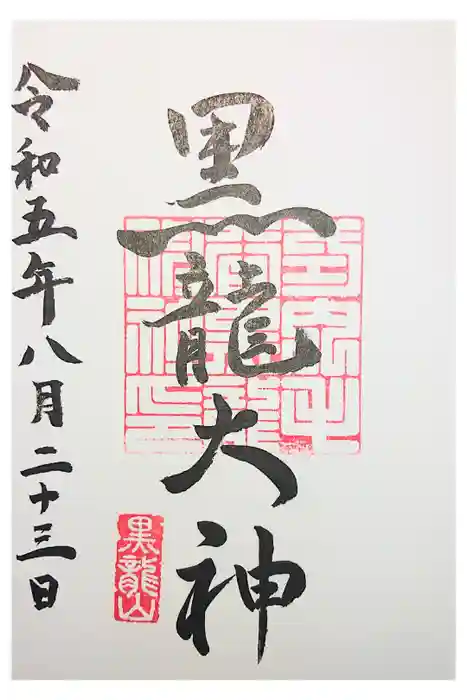 黒龍大神
黒龍山
令和五年八月二十三日